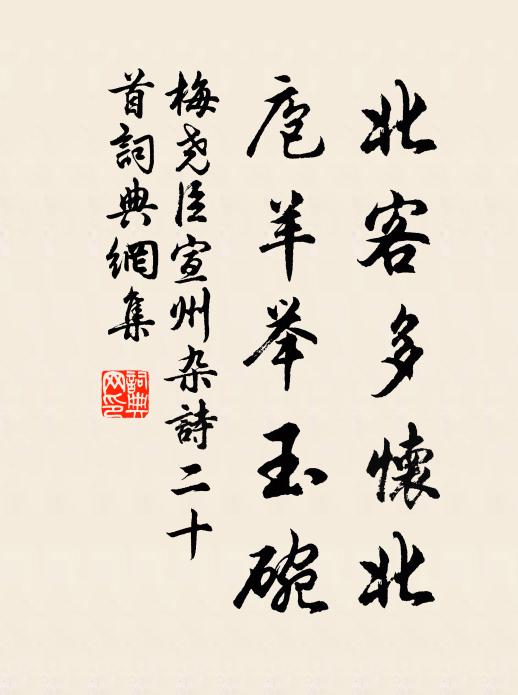 北客多懷北
庖羊举玉碗
梅尧臣宣州杂詩二十
首詞典網集
詞典
网印